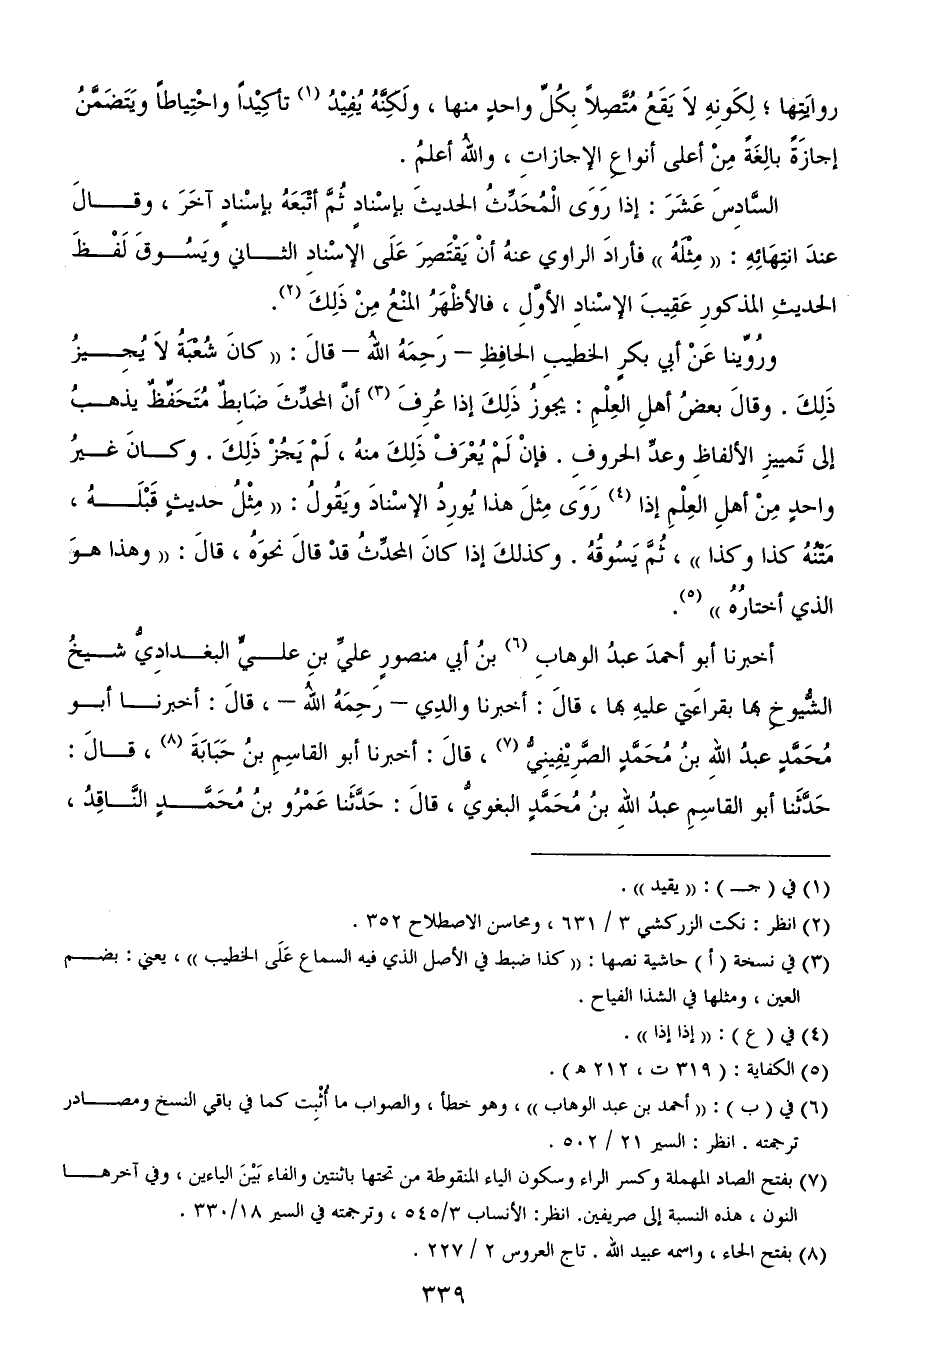 روايَتِها ؛ لِكَونِهِ لاَ يَقَعُ مُتَّصِلاً بِكُلِّ واحدٍ منها ، ولَكِنَّهُ يُفِيْدُ (١) تأكِيْداً واحْتِياطاً ويَتَضَمَّنُ
إجازَةً بالِغَةً مِنْ أعلى أنواعِ الإجازاتِ ، واللهُ أعلمُ .
السَّادِسَ عَشَرَ : إذا رَوَى الْمُحَدِّثُ الحديثَ بإسْنادٍ ثُمَّ أتْبَعَهُ بإسْنادٍ آخَرَ ، وقـــالَ
عندَ انتِهائِهِ : (( مِثْلَهُ )) فأرادَ الراوي عنهُ أنْ يَقْتَصِرَ عَلَى الإسْنادِ الثـــاني ويَسُـــوقَ لَفْـــظَ
الحديثِ المذكورِ عَقِيبَ الإسْنادِ الأوَّلِ ، فالأظْهَرُ المنْعُ مِنْ ذَلِكَ (٢).
ورُوِّينا عَنْ أبي بكرٍ الخطيبِ الحافِظِ – رَحِمَهُ اللهُ – قالَ : (( كانَ شُعْبَةُ لاَ يُجِـــيزُ
ذَلِكَ . وقالَ بعضُ أهلِ العِلْمِ : يجوزُ ذَلِكَ إذا عُرِفَ (٣) أنَّ المحدِّثَ ضَابِطٌ مُتَحَفِّظٌ يذهـــبُ
إلى تَمييزِ الألفاظِ وعدِّ الحروفِ . فإنْ لَمْ يُعْرَفْ ذَلِكَ منهُ ، لَمْ يَجُزْ ذَلِكَ . وكـــانَ غـــيرُ
واحدٍ مِنْ أهلِ العِلْمِ إذا (٤) رَوَى مِثلَ هذا يُورِدُ الإسْنادَ ويَقُولُ : (( مِثْلُ حديثٍ قَبْلَـــهُ ،
مَتْنُهُ كذا وكذا )) ، ثُمَّ يَسُوقُهُ . وكذلكَ إذا كانَ المحدِّثُ قدْ قالَ نحوَهُ ، قالَ : (( وهذا هـوَ
الذي أختارُهُ )) (٥).
أخبرنا أبو أحمدَ عبدُ الوهابِ (٦) بنُ أبي منصورٍ عليِّ بنِ علـــيٍّ البغـــداديُّ شـــيخُ
الشُّيوخِ بها بقراءَتي عليهِ بها ، قالَ : أخبرنا والدِي – رَحِمَهُ اللهُ – ، قالَ : أخبرنـــا أبـــو
مُحَمَّدٍ عبدُ اللهِ بنُ مُحَمَّدٍ الصَّرِيْفِينِيُّ (٧) ، قالَ : أخبرنا أبو القاسِمِ بنُ حَبَابَةَ (٨) ، قـــالَ :
حَدَّثَنا أبو القاسِمِ عبدُ اللهِ بنُ مُحَمَّدٍ البغويُّ ، قالَ : حَدَّثَنا عَمْرُو بنُ مُحَمَّـــدٍ النَّـــاقِدُ ،
(١) في ( جـــ ) : (( يقيد )) .
(٢) انظر : نكت الزركشي ٣ / ٦٣١ ، ومحاسن الاصطلاح ٣٥٢ .
(٣) في نسخة ( أ ) حاشية نصها : (( كذا ضبط في الأصل الذي فيه السماع عَلَى الخطيب )) ، يعني : بضـــم
العين ، ومثلها في الشذا الفياح .
(٤) في ( ع ) : (( إذا إذا )) .
(٥) الكفاية : ( ٣١٩ ت ، ٢١٢ ه ) .
(٦) في ( ب ) : (( أحمد بن عبد الوهاب )) ، وهو خطأ ، والصواب ما أُثْبِت كما في باقي النسخ ومصـــادر
ترجمته . انظر : السير ٢١ / ٥٠٢ .
(٧) بفتح الصاد المهملة وكسر الراء وسكون الياء المنقوطة من تحتها باثنتين والفاء بَيْنَ الياءين ، وفي آخرهـــا
النون ، هذه النسبة إلى صريفين. انظر: الأنساب ٥٤٥/٣ ، وترجمته في السير ٣٣٠/١٨ .
(٨) بفتح الحاء ، واسمه عبيد الله . تاج العروس ٢ / ٢٢٧ .
٣٣٩